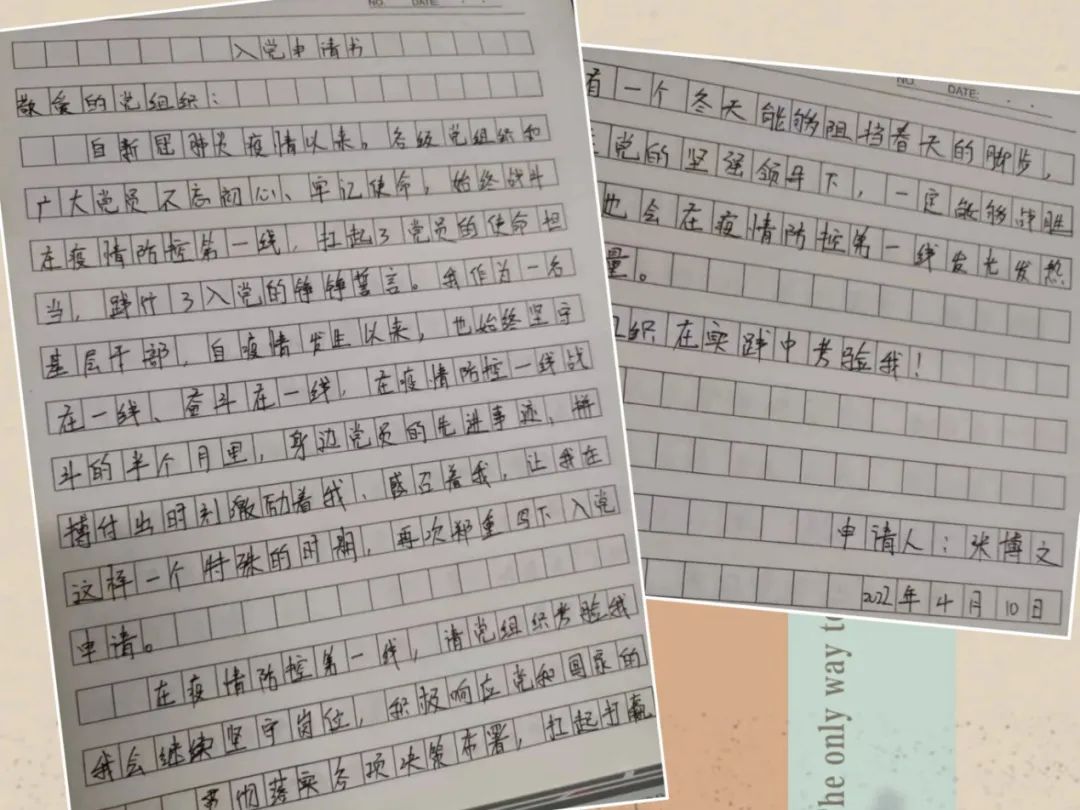 NO. DATE:
入党申请书
敬爱的党组织：
自新冠肺炎疫情以来，各级党组织和
广大党员不忘初心、牢记使命，始终战斗
在疫情防控第一线，扛起了党员的使命担
当，践行了入党的铮铮誓言。我作为一名
基层干部，自疫情发生以来，也始终坚守
在一线、奋斗在一线，在疫情防控一线战
斗的半个月里，身边党员的先进事迹，拼
搏付出时刻激励着我、感召着我，让我在
这样一个特殊的时期，再次郑重写下入党
申请。
在疫情防控第一线，请党组织考验我
我会继续坚守岗位，积极响应党和国家的
贯彻落实各项决策布署，扛起打赢
NO. DATE:
有一个冬天能够阻挡春天的脚步，
党的坚强领导下，一定能够战胜
也会在疫情防控第一线发光发热
量。
织在实践中考验我！
申请人：张博文
2022年4月10日
he only way to